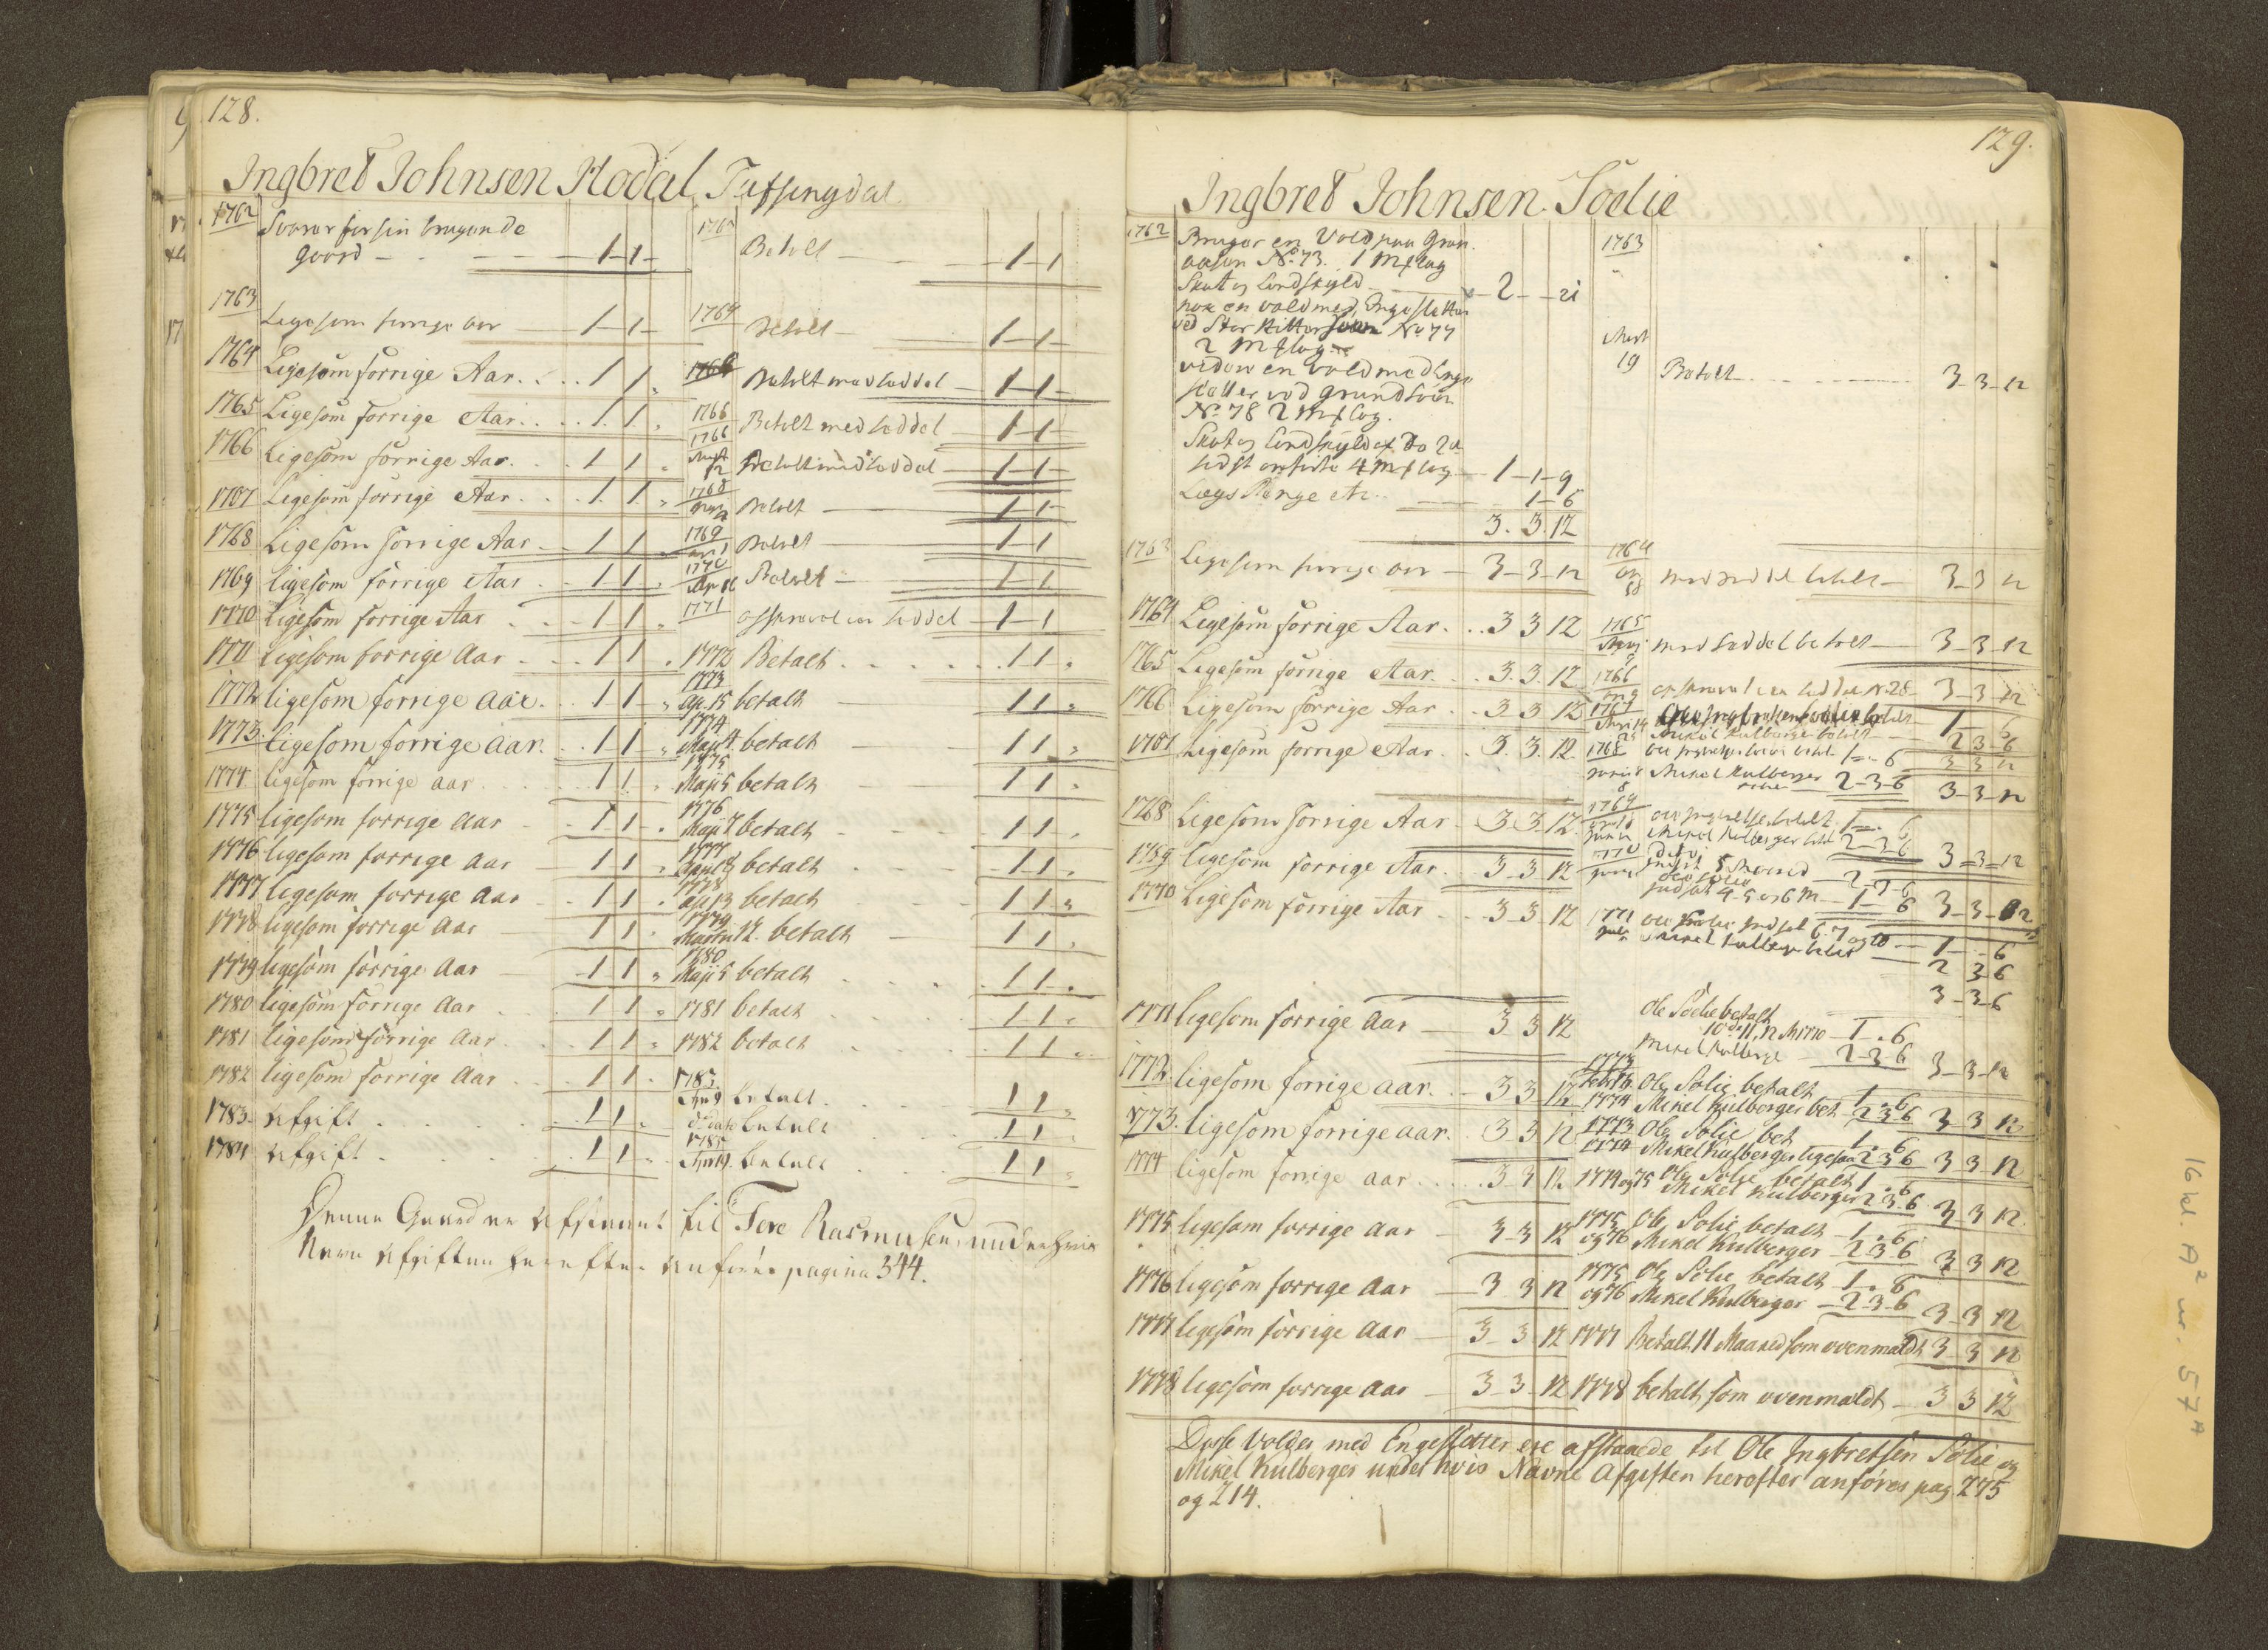 128.
Ingbret Johnsen Hodal Tufsingdal
1762 Svarer for sin brugende
Gaard 1 1
1763 Ligesom forrige aar 1 1
1764 Ligesom forrige Aar 1 1
1765 Ligesom forrige Aar 1 1
1766 Ligesom forrige Aar 1 1
1767 Ligesom forrige Aar 1 1
1768 Ligesom forrige Aar 1 1
1769 ligesom forrige Aar 1 1
1770 Ligesom forrige Aar 1 1
1771 Ligesom forrige Aar 1 1
1772 ligesom forrige aar 1 1
1773 ligesom forrige aar 1 1
1774 ligesom forrige aar 1 1
1775 ligesom forrige aar 1 1
1776 ligesom forrige aar 1 1
1777 ligesom forrige aar 1 1
1778 ligesom forrige aar 1 1
1779 ligesom forrige Aar 1 1
1780 ligesom forrige Aar 1 1
1781 ligesom forrige Aar 1 1
1782 ligesom forrige Aar 1 1
1783 Afgift 1 1
1784 Afgift 1 1
Betalt 1 1
1764 Betalt 1 1
Betalt med seddel 1 1
1766 Betalt med seddel 1 1
1766
Betalt med seddel 1 1
1768 Betalt 1 1
1769 Betalt 1 1
1770 Betalt 1 1
1771 afskreved en seddel 1 1
1772 Betalt 1 1
1773
Ap. 15 betalt 1 1
1774
Maji 4 betalt 1 1
1775
Maji 5 betalt 1 1
1776
Maji 7 betalt 1 1
1777
April betalt 1 1
1778
betalt 1 1
1779
Martii 12. betalt 1 1
1780
Maji 5 betalt 1 1
1781 betalt 1 1
1782 betalt 1 1
1783
betalt 1 1
betalt 1 1
1785
betalt 1 1
Denne Gaard er Afstaaet til Tore Rasmusen under hvis
Navn Afgiften herefter anføres pagina 344.
129.
Ingbret Johnsen Söelie
1762 Bruger en Vold paa Gran
aasen No. 73. 1 Mælag
Skat og Landskyld 2 21
nok en vold med Engesletter
ved Stor No 77
2 Mælag
viderre en vold med Enge
sletter ved
No. 78 2 Mælag.
Skat og Landskyld
sidst anførte 4 Mælag 1 1 9
Lægs Penge etc. 1 6
3. 3. 12
1763 Ligesom forrige aar 3 3 12
1764 Ligesom forrige Aar 3 3 12
1765 Ligesom forrige Aar 3. 3. 12
1766 Ligesom forrige Aar 3 3 12
1767 Ligesom forrige Aar 3. 3. 12
1768 Ligesom forrige Aar 3 3. 12
1769 ligesom forrige Aar 3 3 12
1770 Ligesom forrige Aar 3 3 12
1771 ligesom forrige Aar 3 3 12
1772 ligesom forrige aar 3 3 12
1773 ligesom forrige aar 3 3 12
1774 ligesom forrige aar 3 3 12
1775 ligesom forrige aar 3 3 12
1776 ligesom forrige aar 3 3 12
1777 ligesom forrige aar 3 3 12
1778 ligesom forrige aar 3 3 12
1763
19 Betalt 3 3 12
1764 med seddel betalt 3 3 12
1765 med seddel betalt 3 3 12
1766 afskreved en seddel N. 28 3 3 12
1767 betalt 1 6
Mikel Kulberger betalt 2 3 6
3 3 12
1768 1 6
Mikel Kulberger 2 3 6 3 3 12
1769 1 6
Mikel Kulberger 2 3 6 3 3 12
1770
2 3 6
1 6 3 3 12
1771 6. 7 og 10 1 6
Mikel Kulberger betalt 2 3 6
3 3 6
Ole Söelie betalt
1 6
Mikel Kulberger 2 3 6 3 3 12
1773 Ole Solie betalt 1 6
1774 Mikel Kulberger bet. 2 3 6 3 3 12
1773 Ole Solie bet 1 6
1774 Mikel Kulberger ligesaa 2 3 6 3 3 12
1774 og 75 Ole Solie betalt 1 6
Mikel Kulberger 2 3 6 3 3 12
1775 Ole Solie betalt 1 6
og 76 Mikel Kulberger 2 3 6 3 3 12
1775 Ole Solie betalt 1. 6
og 76 Mikel Kulberger 2 3 6 3 3 12
1777 Betalt 11 Maaned som ovenmældt 3 3 12
1778 betalt som ovenmældt 3 3 12
Disse Volder med Engesletter ere afstaaede til Ole Ingbretsen Sölie og
Mikel Kulberger under hvis Navne Afgiften herefter anföres pag 275
og 214.
16 kl. A² nr. 57ᴬ